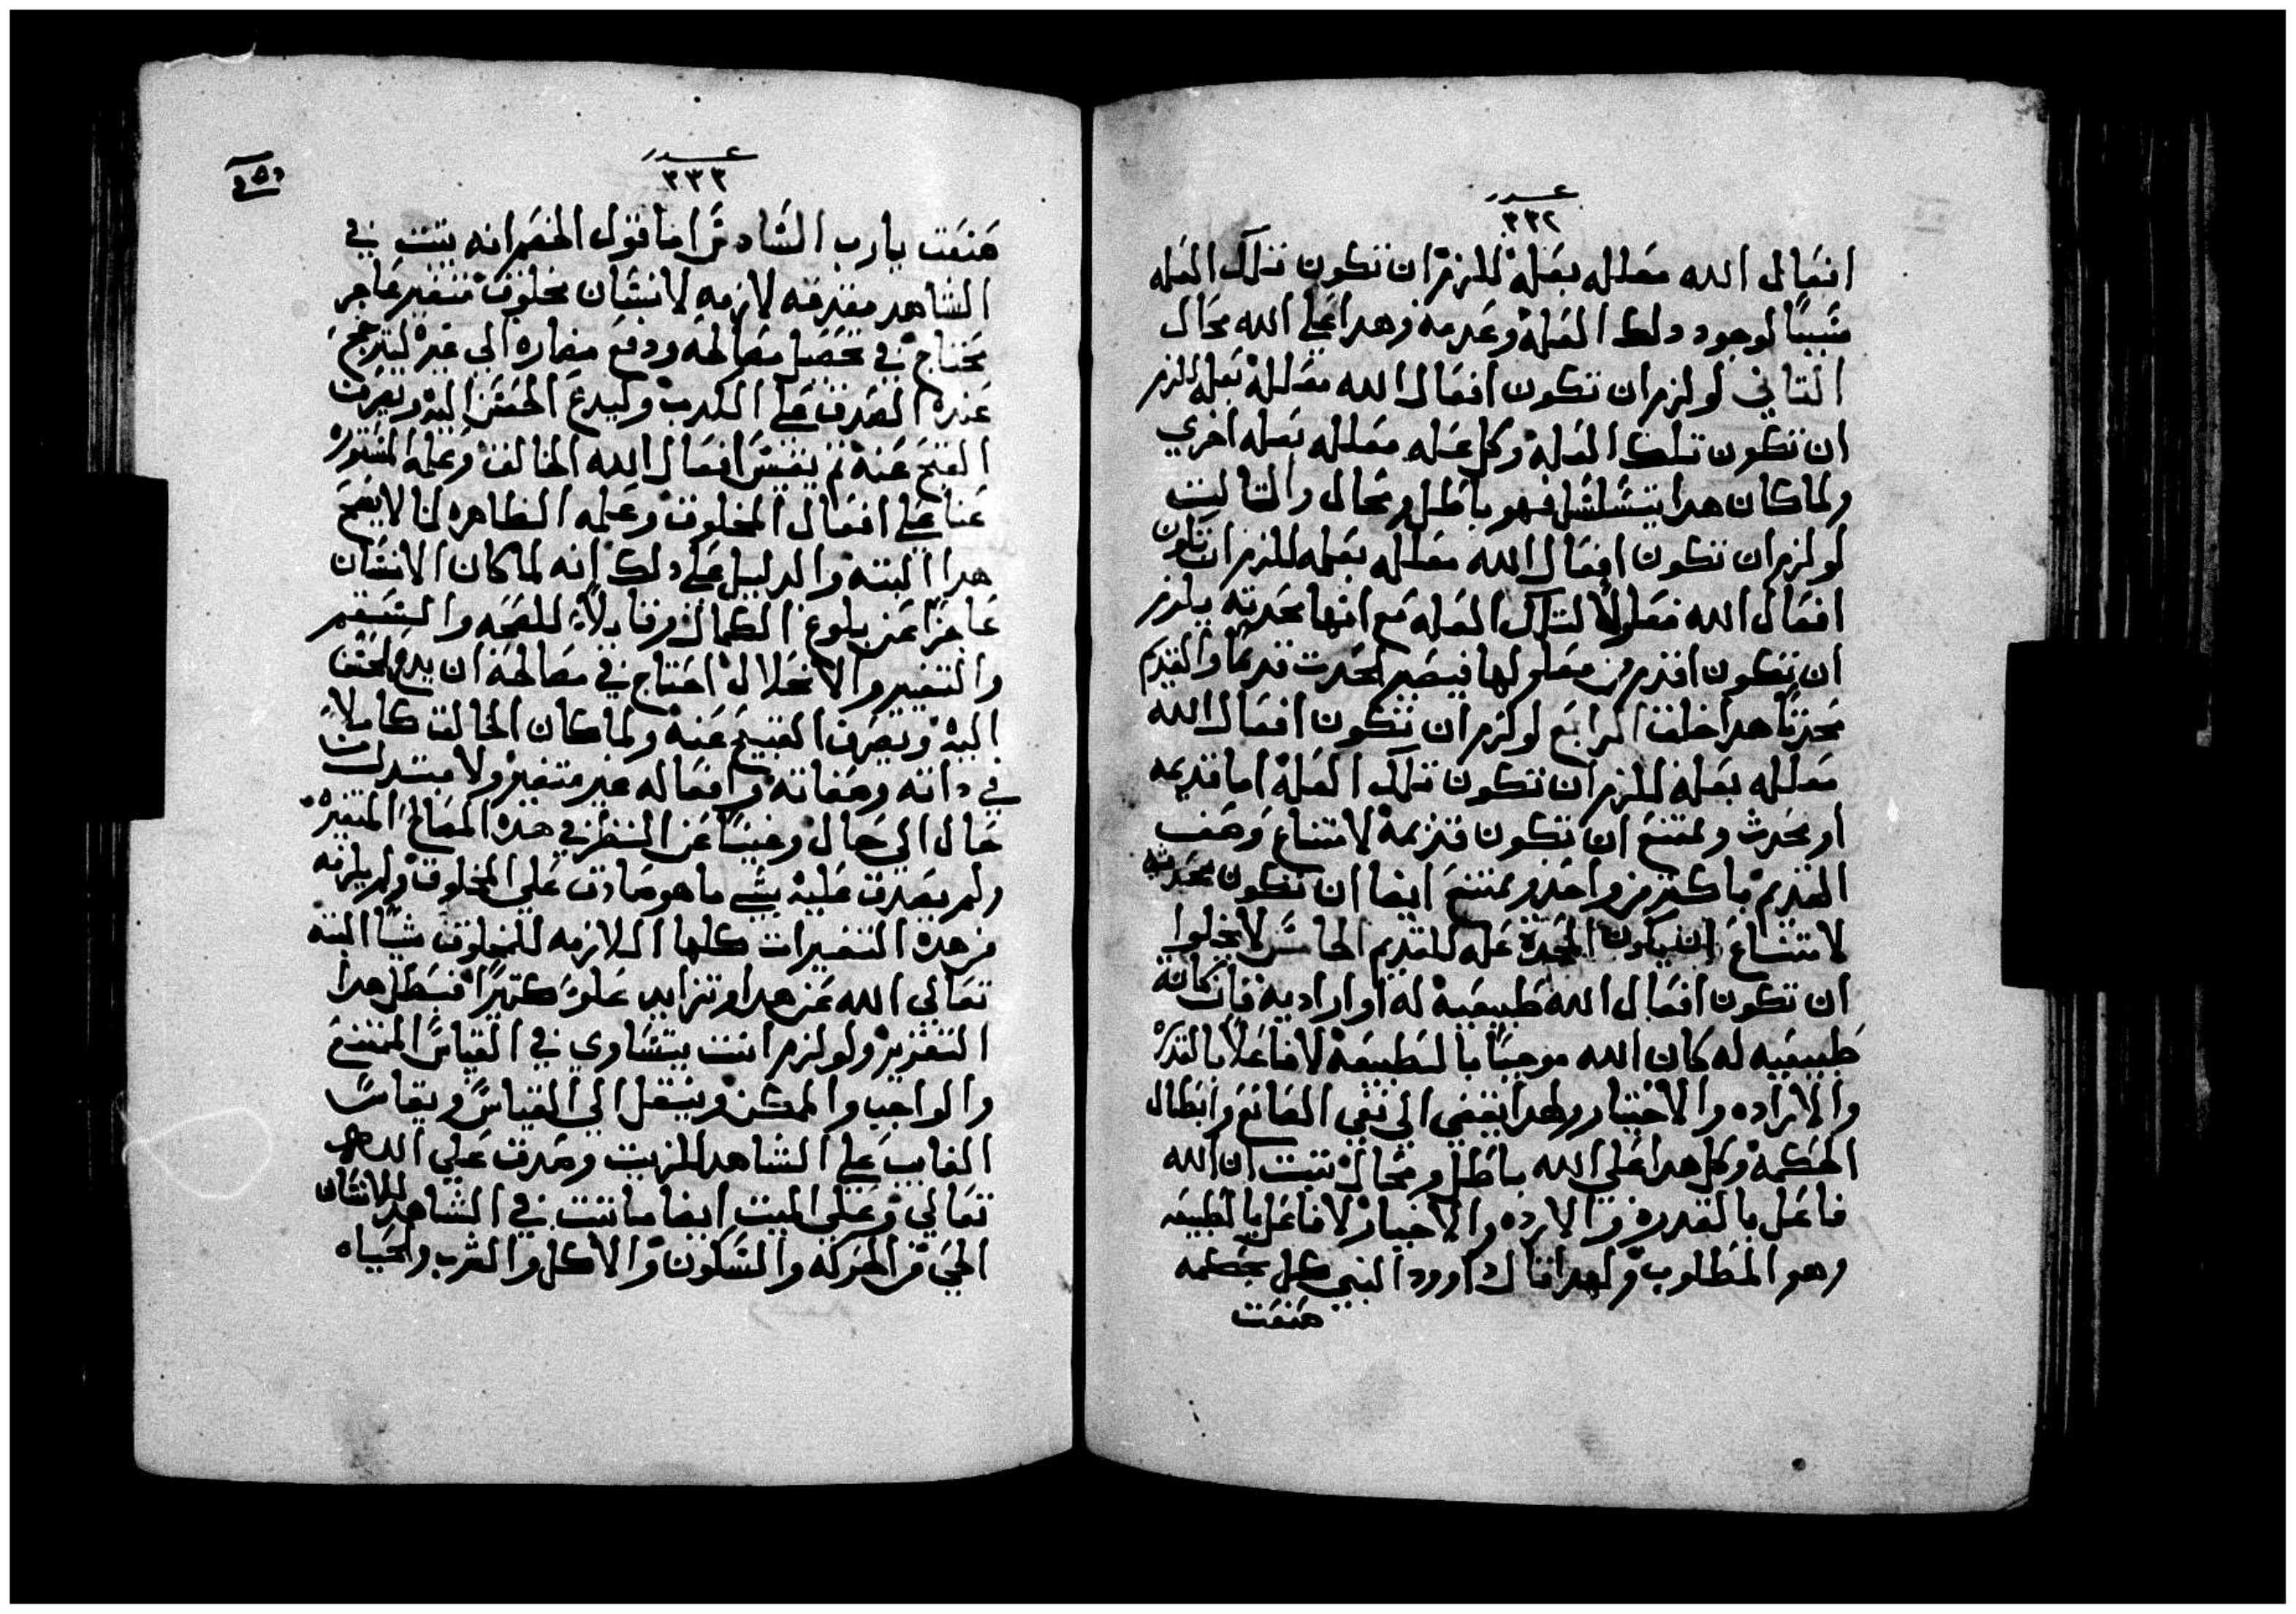 عدد
٣٣٢
افعال الله معلله بعلة للزم ان تكون تلك العله
سببًا لوجود دلك العلة وعدمه وهدا علي الله محال
التاني لو لزم ان تكون افعال الله معللة بعله للزم
ان تكون تلك العلة وكل عله معلله بعله اخري
ولما كان هدا يتسلسل فهو باطل ومحال والتالت
لو لزم ان تكون افعال الله معلله بعله للزم ان تكون
افعال الله معلولاً لتلك العله مع انها محدته يلزم
ان تكون اقدم من معلولها فيصير المحدت قديمًا والقديم
محدتًا هدا خلف الرابع لو لزم ان تكون افعال الله
معلله بعلة للزم ان تكون تلك العلة اما قديمه
او محدث ويمتنع ان تكون قديمة لامتناع وصف
القديم باكتر من واحد ويمتنع ايضا ان تكون محدته
لامتناع ان يكون المحدة عله للقديم الخامس لا يخلوا
ان تكون افعال الله طبيعية له او ارادية فان كانة
طبيعيه له كان الله موجبًا بالطبيعة لا فاعلاً بالقدرة
والاراده والاختيار وهدا يفضي الي نفي الصانع وابطال
الحكمة وكل هدا علي الله باطل ومحال تبت ان الله
فاعل بالقدرة والارده والاختيار لا فاعل بالطبيعه
وهو المطلوب ولهدا قال داوود النبي كل بحكمه
صنعت
عدد
٣٣٣
صنعت يارب السادس اما قول الخصم انه يتبت في
الشاهد مقدمه لازمه لانسان مخلوق متغير عاجز
محتاج في تحصيل مصالحه ودفع مضاره الي غيره ليترجح
عنده الصدق علي الكدب وليدع الحسن اليه ويصرف
القبح عنه تم يقيس افعال الله الخالق وعله المستوره
عنا علي افعال المخلوق وعله الظاهره لنا لا يصح
هدا البته والدليل علي دلك انه لما كان الانسان
عاجزًا عن بلوغ الكمال وقابلاً للصحه والسقم
والتغيير والانحلال احتاج في مصالحه ان يدع الحسن
اليه ويصرف القبيح عنه ولما كان الخالق كاملاً
في داته وصفاته وافعاله غير متغير ولا مبتدل من
حال الي حال وغنيًا عن النظر في هده المصالح المتغيرة
ولم يصدق عليه بشي ما هو صادق علي المخلوق ولم يلزمه
من هده التغييرات كلها اللازمه للمخلوق شيًا البته
تعالي الله عن هدا وتزايد علوً كتيرًا فبطل هدا
التقرير ولو لزم انت يتساوي في القياس الممتنع
والواجب والممكن وينتقل الي القياس ويقاس
الغايب علي الشاهد للزم وصدق علي الله
تعالي وعلي الميت ايضا ما تبت في الشاهد للانسان
الحي من الحركه والسكون والاكل والشرب والحياه